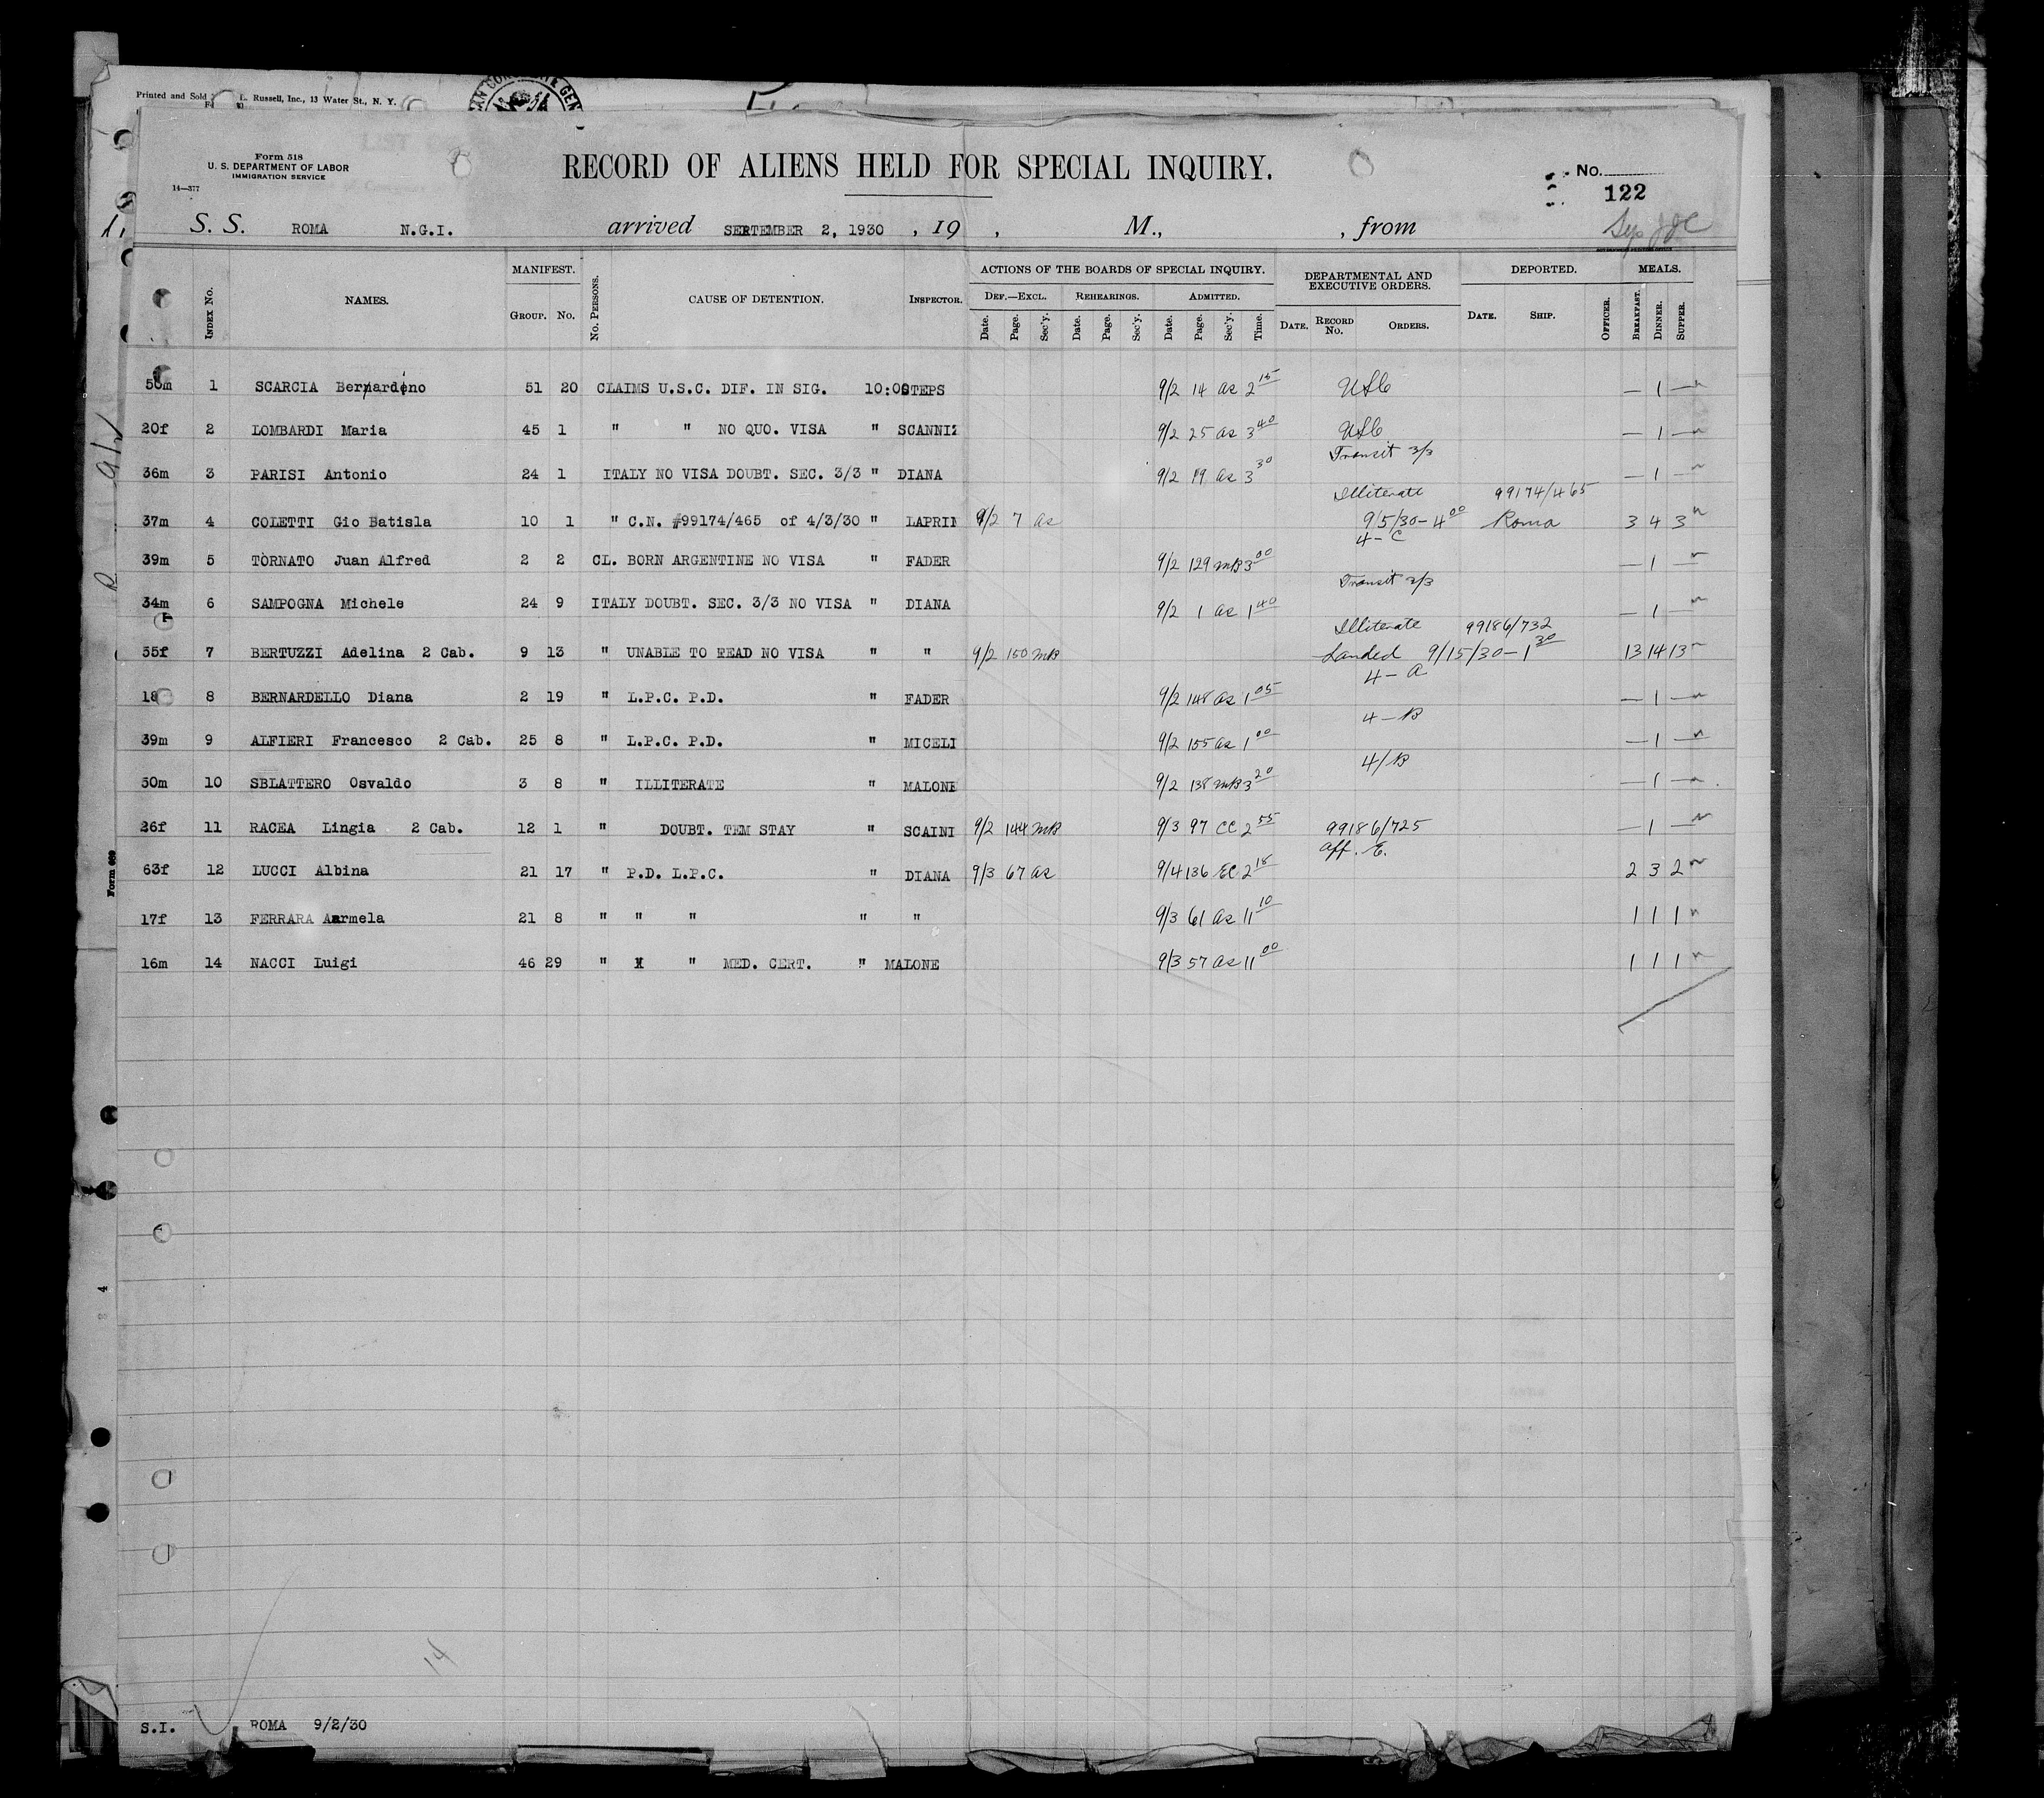 Printed and Sold Russell, Inc., 13 Water St., N. Y.
Form 518
U. S. DEPARTMENT OF LABOR
IMMIGRATION SERVICE
14—377
RECORD OF ALIENS HELD FOR SPECIAL INQUIRY.
No.
122
S. S. ROMA N.G.I. arrived SEPTEMBER 2, 1930 , 19 , M., , from
INDEX No. NAMES. MANIFEST. GROUP. No. No. PERSONS. CAUSE OF DETENTION. INSPECTOR. ACTIONS OF THE BOARDS OF SPECIAL INQUIRY. DEPARTMENTAL AND EXECUTIVE ORDERS. DEPORTED. MEALS.
DEF.—EXCL. REHEARINGS. ADMITTED.
Date. Page. Sec'y. Date. Page. Sec'y. Date. Page. Sec'y. Time. DATE. RECORD No. ORDERS. DATE. SHIP. OFFICER. BREAKFAST. DINNER. SUPPER.
50m 1 SCARCIA Bernardino 51 20 CLAIMS U.S.C. DIF. IN SIG. 10:00 STEPS 9/2 14 as 2 15 USC — 1 —
20f 2 LOMBARDI Maria 45 1 " " NO QUO. VISA " SCANNIZ 9/2 25 as 3 40 USC — 1 —
Transit 3/3
36m 3 PARISI Antonio 24 1 ITALY NO VISA DOUBT. SEC. 3/3 " DIANA 9/2 19 as 3 30 — 1 —
Illiterate 99174/465
37m 4 COLETTI Gio Batisla 10 1 " C.N. #99174/465 of 4/3/30 " LAPRIN 9/2 7 as 9/5/30-4 00 Roma 3 4 3
4-C
39m 5 TORNATO Juan Alfred 2 2 CL. BORN ARGENTINE NO VISA " FADER 9/2 129 mB 3 00 — 1 —
Transit 3/3
34m 6 SAMPOGNA Michele 24 9 ITALY DOUBT. SEC. 3/3 NO VISA " DIANA 9/2 1 as 1 40 — 1 —
Illiterate 99186/732
55f 7 BERTUZZI Adelina 2 Cab. 9 13 " UNABLE TO READ NO VISA " " 9/2 150 mB Landed 9/15/30-1 30 13 14 13
4-A
18 8 BERNARDELLO Diana 2 19 " L.P.C. P.D. " FADER 9/2 148 as 1 05 — 1 —
4-B
39m 9 ALFIERI Francesco 2 Cab. 25 8 " L.P.C. P.D. " MICELI 9/2 155 as 1 00 — 1 —
4/B
50m 10 SBLATTERO Osvaldo 3 8 " ILLITERATE " MALONE 9/2 138 mB 3 20 — 1 —
26f 11 RACEA Lingia 2 Cab. 12 1 " DOUBT. TEM STAY " SCAINI 9/2 144 mB 9/3 97 CC 2 55 99186/725 — 1 —
aff. E.
63f 12 LUCCI Albina 21 17 " P.D. L.P.C. " DIANA 9/3 67 as 9/4 136 EC 2 18 2 3 2
17f 13 FERRARA Aarmela 21 8 " " " " " 9/3 61 as 11 10 1 1 1
16m 14 NACCI Luigi 46 29 " X " MED. CERT. " MALONE 9/3 57 as 11 00 1 1 1
Form 669
4
14
S.I. ROMA 9/2/30